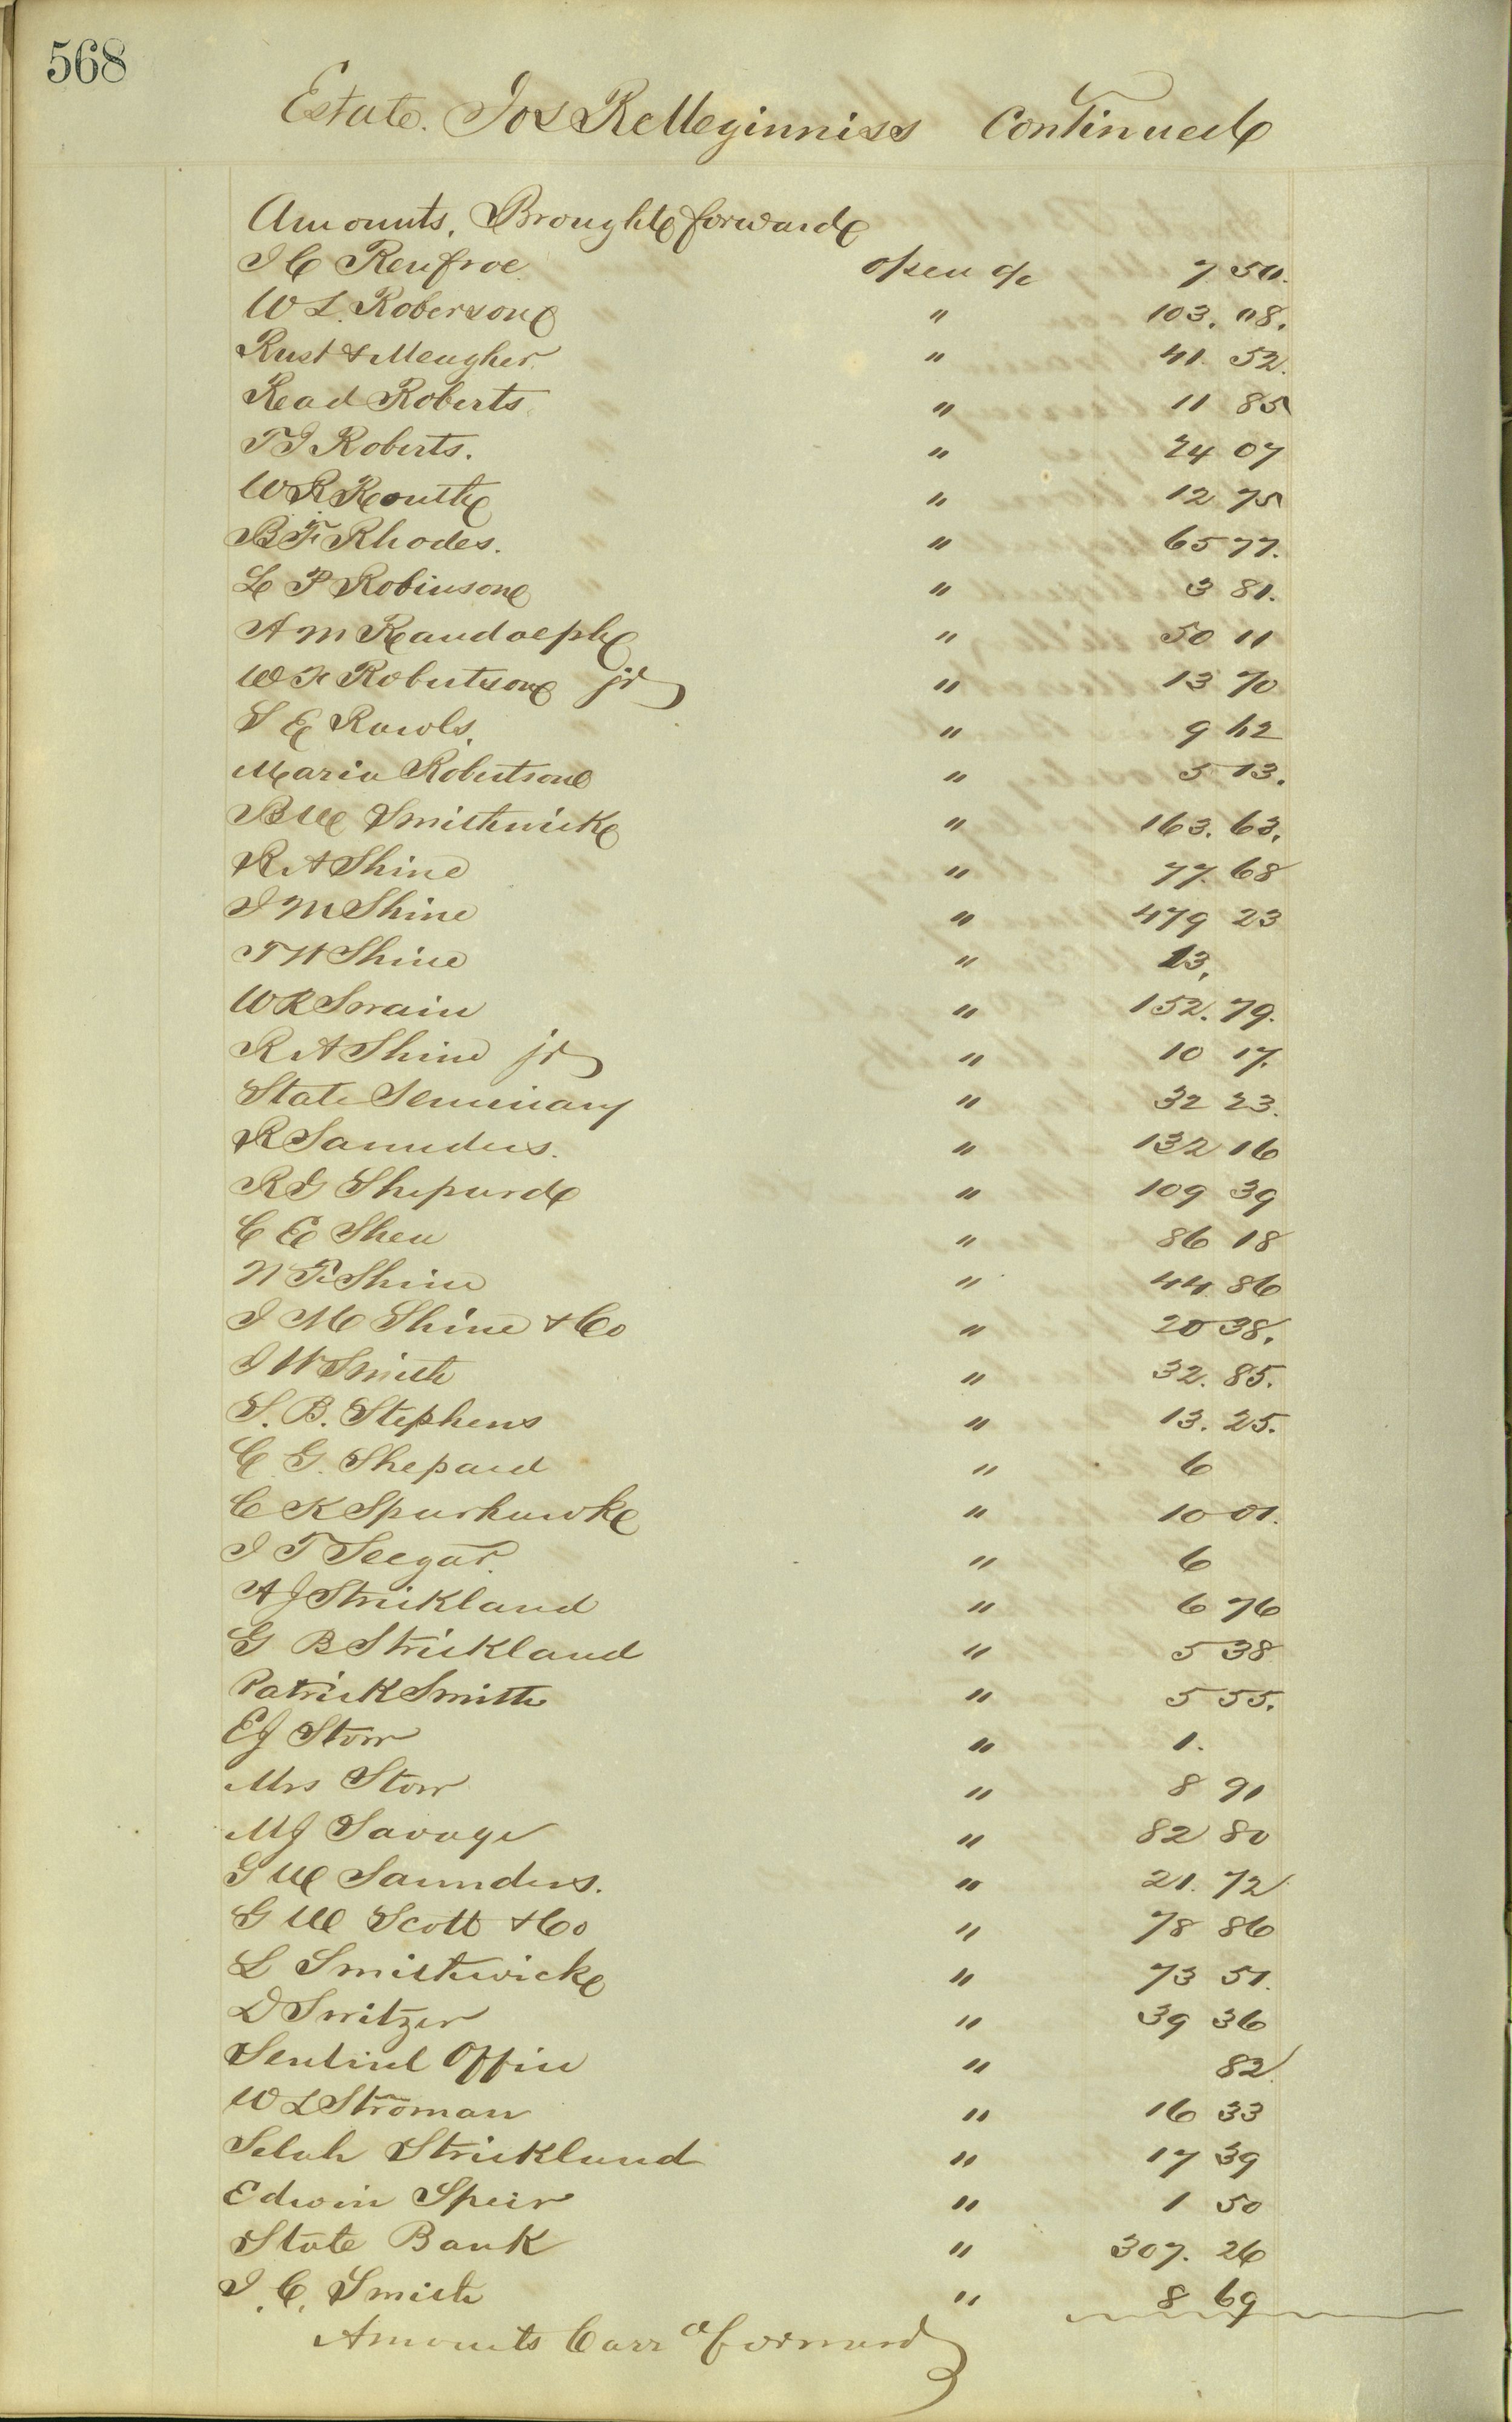 568
Estate. Jos R McGinniss Continued
Amounts, Brought forward
J C Renfroe. open a/c 7 50.
W L. Roberson " 103. 08.
Rust & Meagher. " 41. 52.
Read Roberts " 11 85
T J Roberts. " 24 07
W R Routh " 12 75
B F Rhodes. " 65 77.
L P Robinson " 3 81.
A M Randolph " 50 11
W F Robertson jr " 13 70
S E Rawls. " 9 62
Maria Robertson " 5 13.
B W Smithwick " 163. 63.
R A Shine " 77. 68
J M Shine " 479 23
T W Shine " 13.
W R Swain " 152. 79.
R A Shine jr " 10 17.
State Seminary " 32 23.
R Saunders. " 132 16
R G Shepard " 109 39
C E Shea " 86 18
W F Shine " 44 86
J M Shine & Co " 20 38.
J W Smith " 32. 85.
S. B. Stephens " 13. 25.
C. G. Shepard " 6
C K Sparhawk " 10 01.
J T Seegar. " 6
A J Strickland " 6 76
G B Strickland " 5 38
Patrick Smith " 5 55.
E J Storr " 1.
Mrs Storr " 8 91
M J Savage " 82 80
G W Saunders. " 21. 72
G W Scott & Co " 78 86
L Smithwick " 73 51.
D Switzer " 39 36
Sentinel Office " 82
W L Stroman " 16 33
Selah Strickland " 17 39
Edwin Speir " 1 50
State Bank " 307. 26
J. C. Smith " 8 69
Amounts Carr d forward